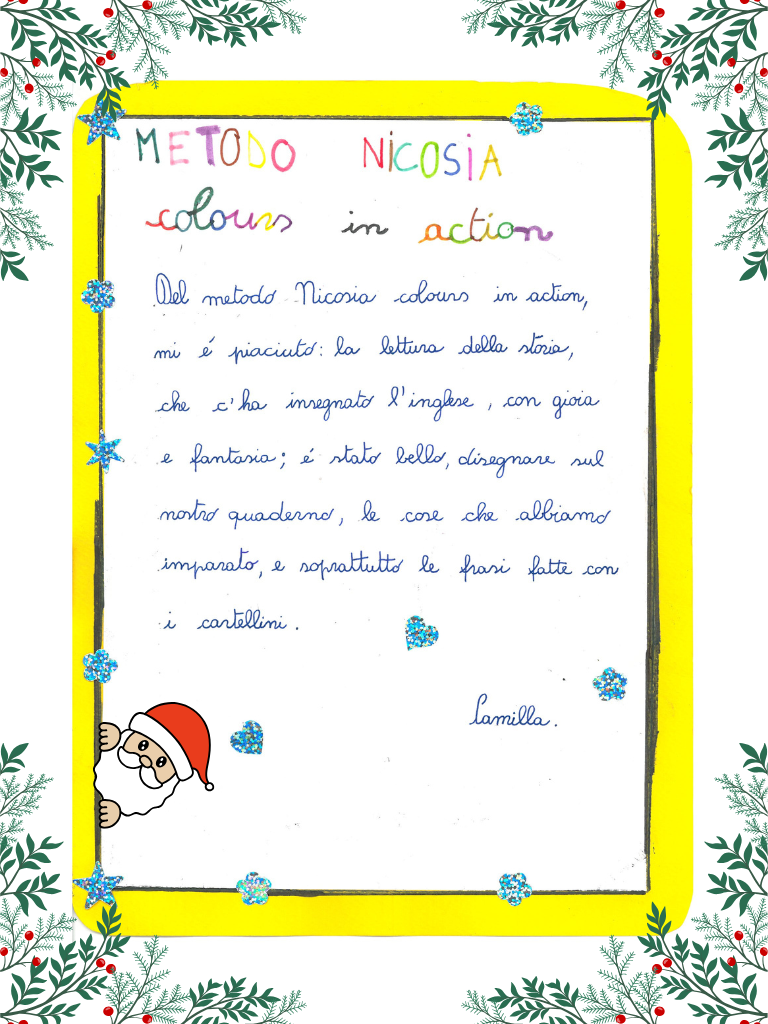 METODO NICOSIA
colours in action
Del metodo Nicosia colours in action,
mi é piaciuto: la lettura della storia,
che c'ha insegnato l'inglese, con gioia
e fantasia; é stato bello, disegnare sul
nostro quaderno, le cose che abbiamo
imparato, e soprattutto le frasi fatte con
i cartellini.
Camilla.